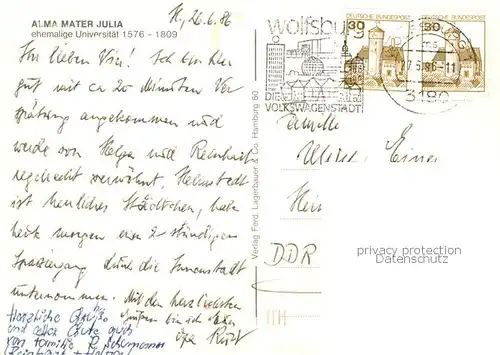 ALMA MATER JULIA
ehemalige Universität 1576 - 1809
H., 26.6.86
Ihr lieben Vier! Ich bin hier
gut mit ca 20 Minuten Ver
spätung angekommen und
werde von Helga und Reinhart
regelrecht verwöhnt. Helmstedt
ist herrliches Städtchen, habe
heute morgen ein 2 stündigen
Spaziergang durch die Innenstadt
unternommen. Mit den herzlichsten
Grüßen bin ich Euer
Opa Kurt
Herzliche Grüße
und alles Gute auch
von Familie
Verlag Ferd. Lagerbauer & Co. Hamburg 60
wolfsburg
DIE
VOLKSWAGENSTADT
DEUTSCHE BUNDESPOST
30
DEUTSCHE BUNDESPOST
30
3180
Familie
DDR
privacy protection
Datenschutz